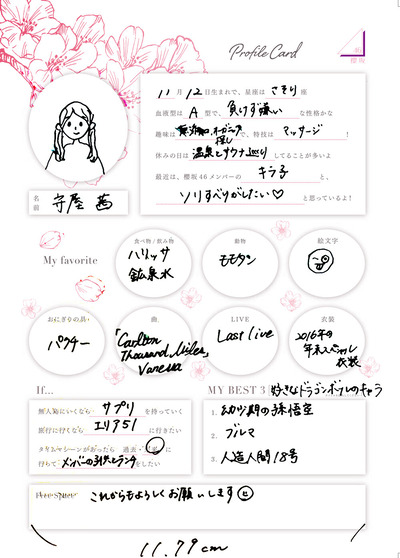 Profile Card
櫻坂
11月12日生まれで、星座はさそり座
血液型はA型で、負けず嫌いな性格かな
趣味は無添加、オーガニック探しで、特技はマッサージ！
休みの日は温泉とサウナ巡りしてることが多いよ
最近は、櫻坂46メンバーのキラ子と、
ソリすべりがしたい♡と思っているよ！
名前 守屋 茜
My favorite
食べ物/飲み物
ハリッサ
鉱泉水
動物
モモタン
絵文字
おにぎりの具
パクチー
曲
「Carlton
Thousand Miles,
Vanessa
LIVE
Last live
衣装
2016年の
年末スペシャル
衣装
If...
無人島にいくならサプリを持っていく
旅行に行くならエリア51に行きたい
タイムマシーンがあったら 過去・未来に
行ってメンバーの子供とランチをしたい
MY BEST 3 好きなドラゴンボールのキャラ
1. 幼少期の孫悟空
2. ブルマ
3. 人造人間18号
Free Space
これからもよろしくお願いします
11.79cm